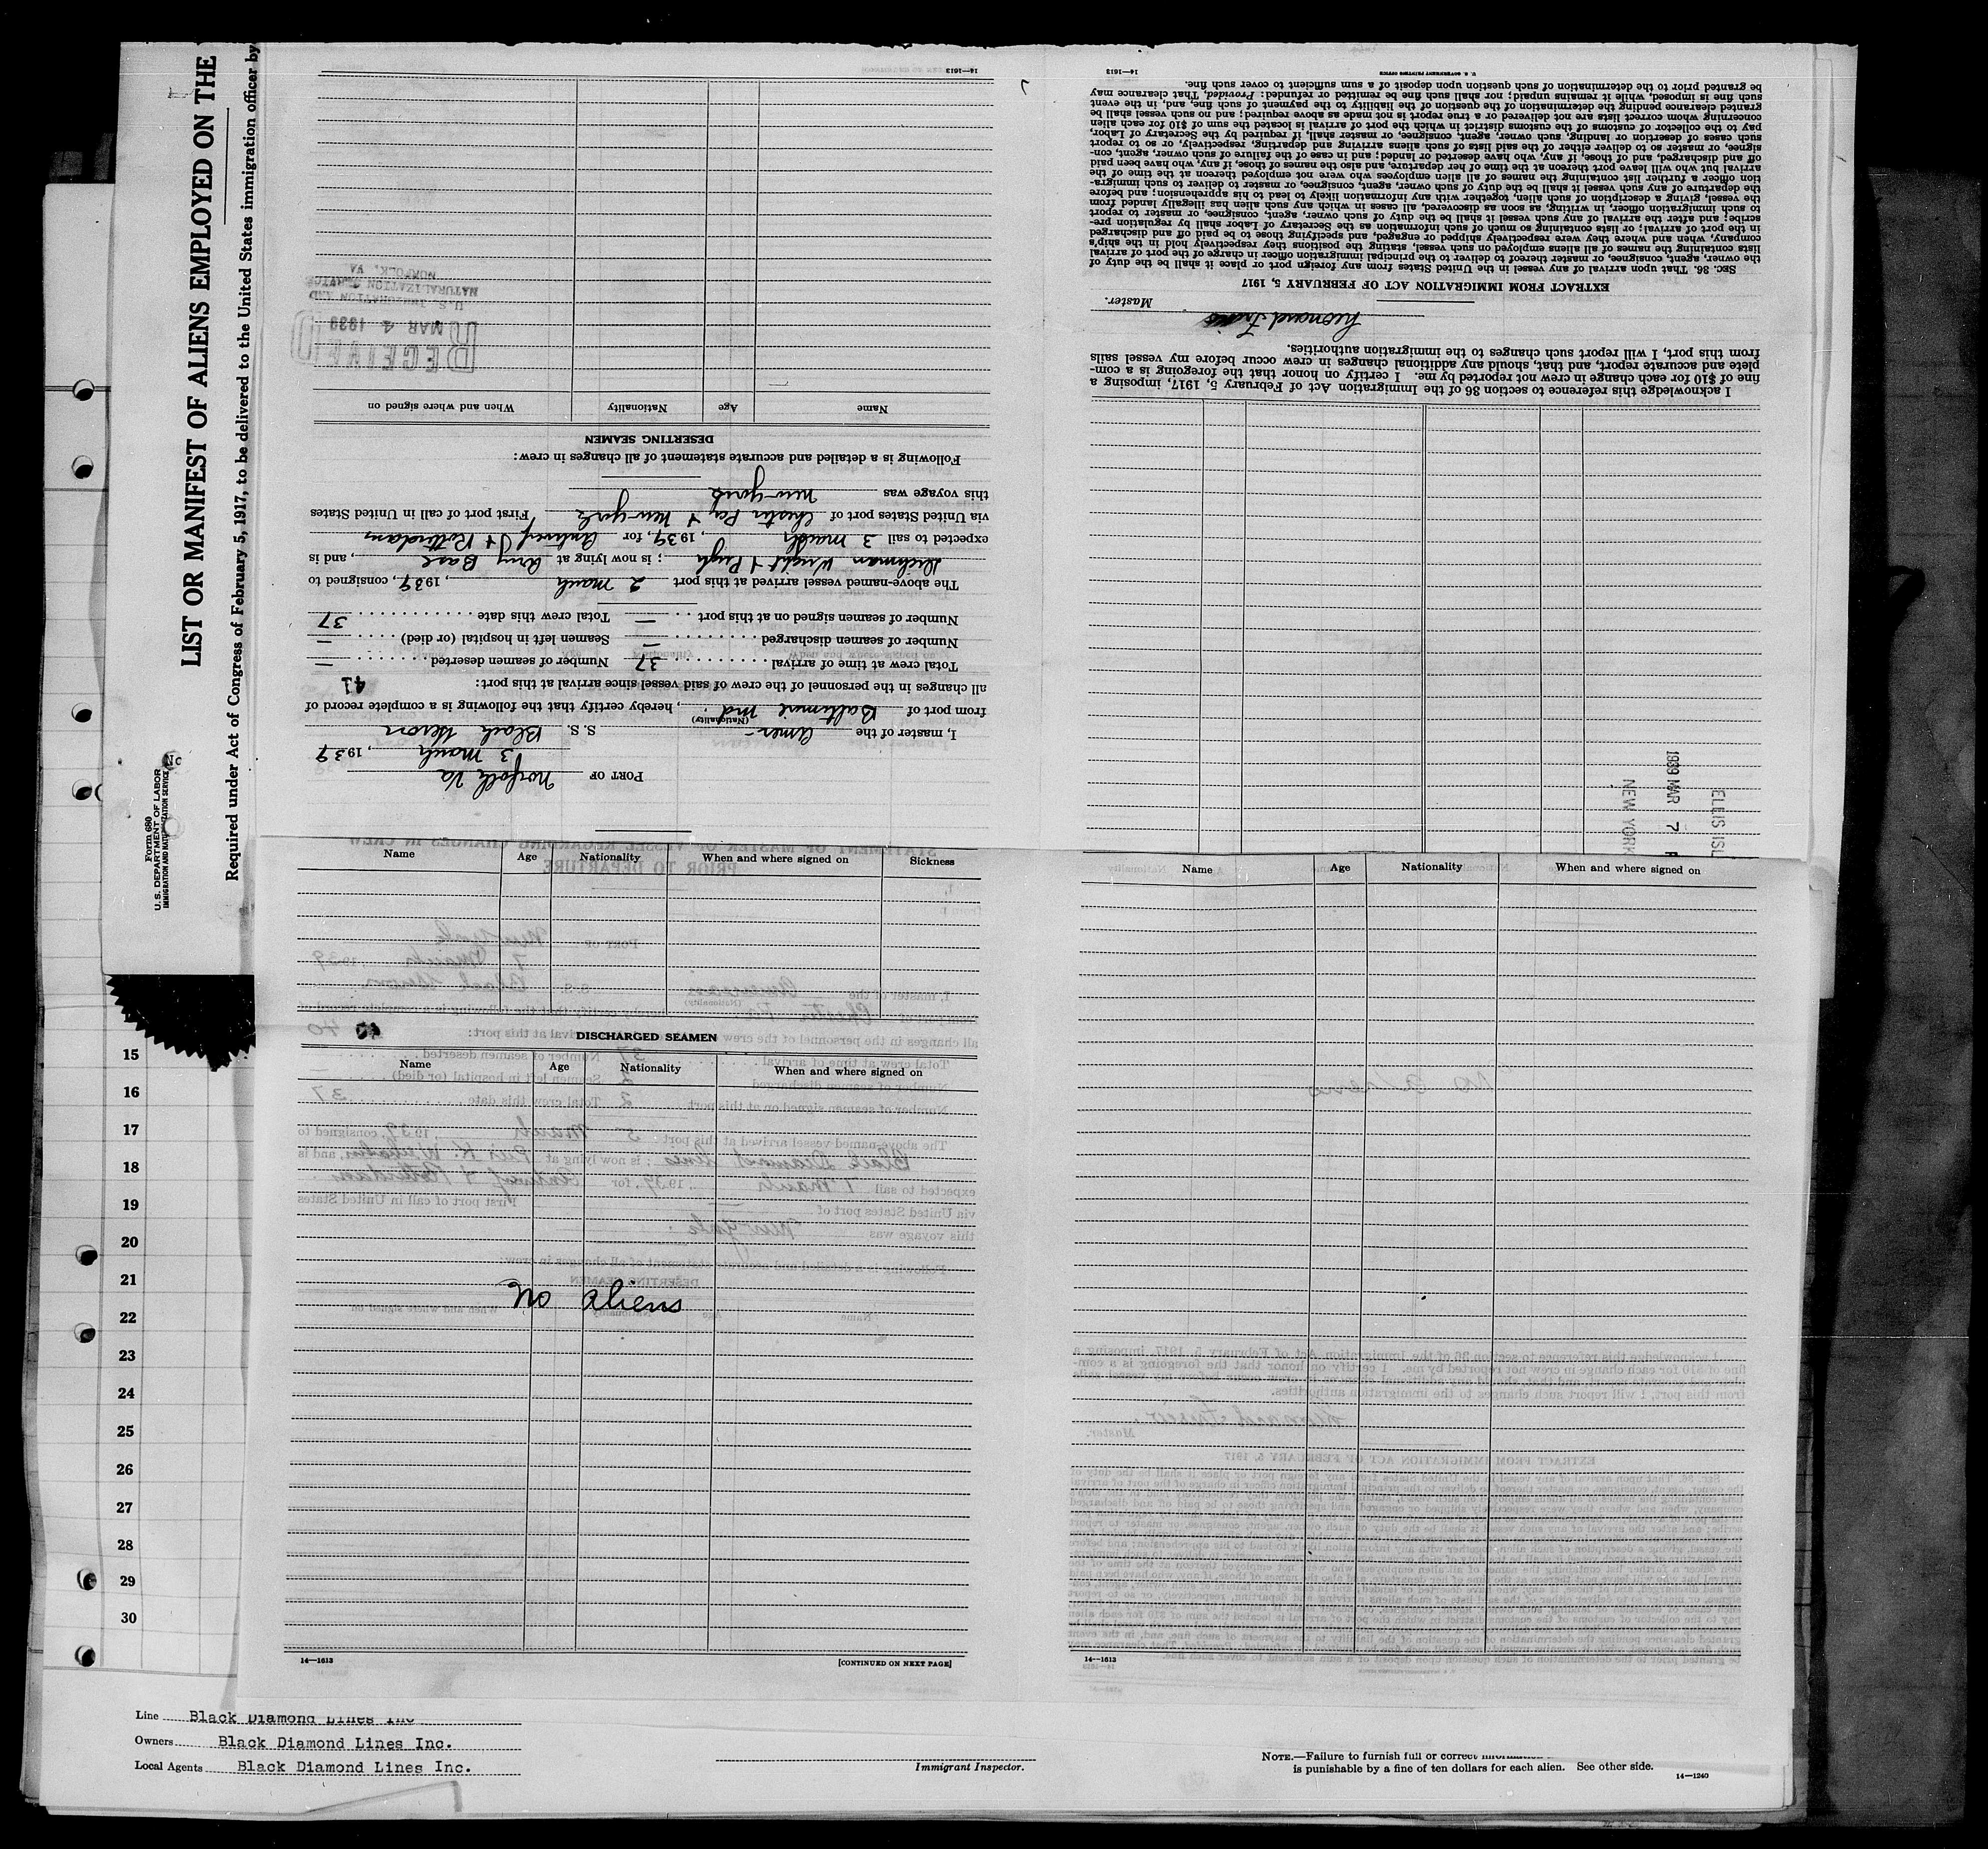 LIST OR MANIFEST OF ALIENS EMPLOYED ON THE
Required under Act of Congress of February 5, 1917, to be delivered to the United States immigration officer by
Form 680
U. S. DEPARTMENT OF LABOR
IMMIGRATION AND NATURALIZATION SERVICE
No
PORT OF Norfolk Va
3 March, 1939
I, master of the Amer- S. S. Black Heron
(Nationality)
from port of Baltimore Md., hereby certify that the following is a complete record of
all changes in the personnel of the crew of said vessel since arrival at this port:
41
Total crew at time of arrival 37 Number of seamen deserted —
Number of seamen discharged — Seamen left in hospital (or died) —
Number of seamen signed on at this port — Total crew this date 37
The above-named vessel arrived at this port 2 March, 1939, consigned to
Wright & Pugh; is now lying at Army Base, and is
expected to sail 3 March, 1939, for Antwerp & Rotterdam
via United States port of Chester Pa & New York First port of call in United States
this voyage was New York
Following is a detailed and accurate statement of all changes in crew:
DESERTING SEAMEN
Name Age Nationality When and where signed on
RECEIVED
MAR 4 1939
U.S. IMMIGRATION AND
NATURALIZATION SERVICE
NORFOLK, VA
14—1613
ELLIS ISL
1939 MAR 7
NEW YORK
I acknowledge this reference to section 36 of the Immigration Act of February 5, 1917, imposing a
fine of $10 for each change in crew not reported by me. I certify on honor that the foregoing is a com-
plete and accurate report, and that, should any additional changes in crew occur before my vessel sails
from this port, I will report such changes to the immigration authorities.
Leonard
Master.
EXTRACT FROM IMMIGRATION ACT OF FEBRUARY 5, 1917
SEC. 36. That upon arrival of any vessel in the United States from any foreign port or place it shall be the duty of
the owner, agent, consignee, or master thereof to deliver to the principal immigration officer in charge of the port of arrival
lists containing the names of all aliens employed on such vessel, stating the positions they respectively hold in the ship's
company, when and where they were respectively shipped or engaged, and specifying those to be paid off and discharged
in the port of arrival; or lists containing so much of such information as the Secretary of Labor shall by regulation pre-
scribe; and after the arrival of any such vessel it shall be the duty of such owner, agent, consignee, or master to report
to such immigration officer, in writing, as soon as discovered, all cases in which any such alien has illegally landed from
the vessel, giving a description of such alien, together with any information likely to lead to his apprehension; and before
the departure of any such vessel it shall be the duty of such owner, agent, consignee, or master to deliver to such immigra-
tion officer a further list containing the names of all alien employees who were not employed thereon at the time of the
arrival but who will leave port thereon at the time of her departure, and also the names of those, if any, who have been paid
off and discharged, and of those, if any, who have deserted or landed; and in case of the failure of such owner, agent, con-
signee, or master so to deliver either of the said lists of such aliens arriving and departing, respectively, or so to report
such cases of desertion or landing, such owner, agent, consignee, or master shall, if required by the Secretary of Labor,
pay to the collector of customs of the customs district in which the port of arrival is located the sum of $10 for each alien
concerning whom correct lists are not delivered or a true report is not made as above required; and no such vessel shall be
granted clearance pending the determination of the question of the liability to the payment of such fine, and, in the event
such fine is imposed, while it remains unpaid; nor shall such fine be remitted or refunded: Provided, That clearance may
be granted prior to the determination of such question upon deposit of a sum sufficient to cover such fine.
14—1613 U. S. GOVERNMENT PRINTING OFFICE
Name Age Nationality When and where signed on Sickness
DISCHARGED SEAMEN
Name Age Nationality When and where signed on
No aliens
14—1613 [CONTINUED ON NEXT PAGE]
Name Age Nationality When and where signed on
14—1613
15
16
17
18
19
20
21
22
23
24
25
26
27
28
29
30
Line Black Diamond Lines Inc
Owners Black Diamond Lines Inc.
Local Agents Black Diamond Lines Inc.
Immigrant Inspector.
NOTE.—Failure to furnish full or correct information
is punishable by a fine of ten dollars for each alien. See other side.
14—1240